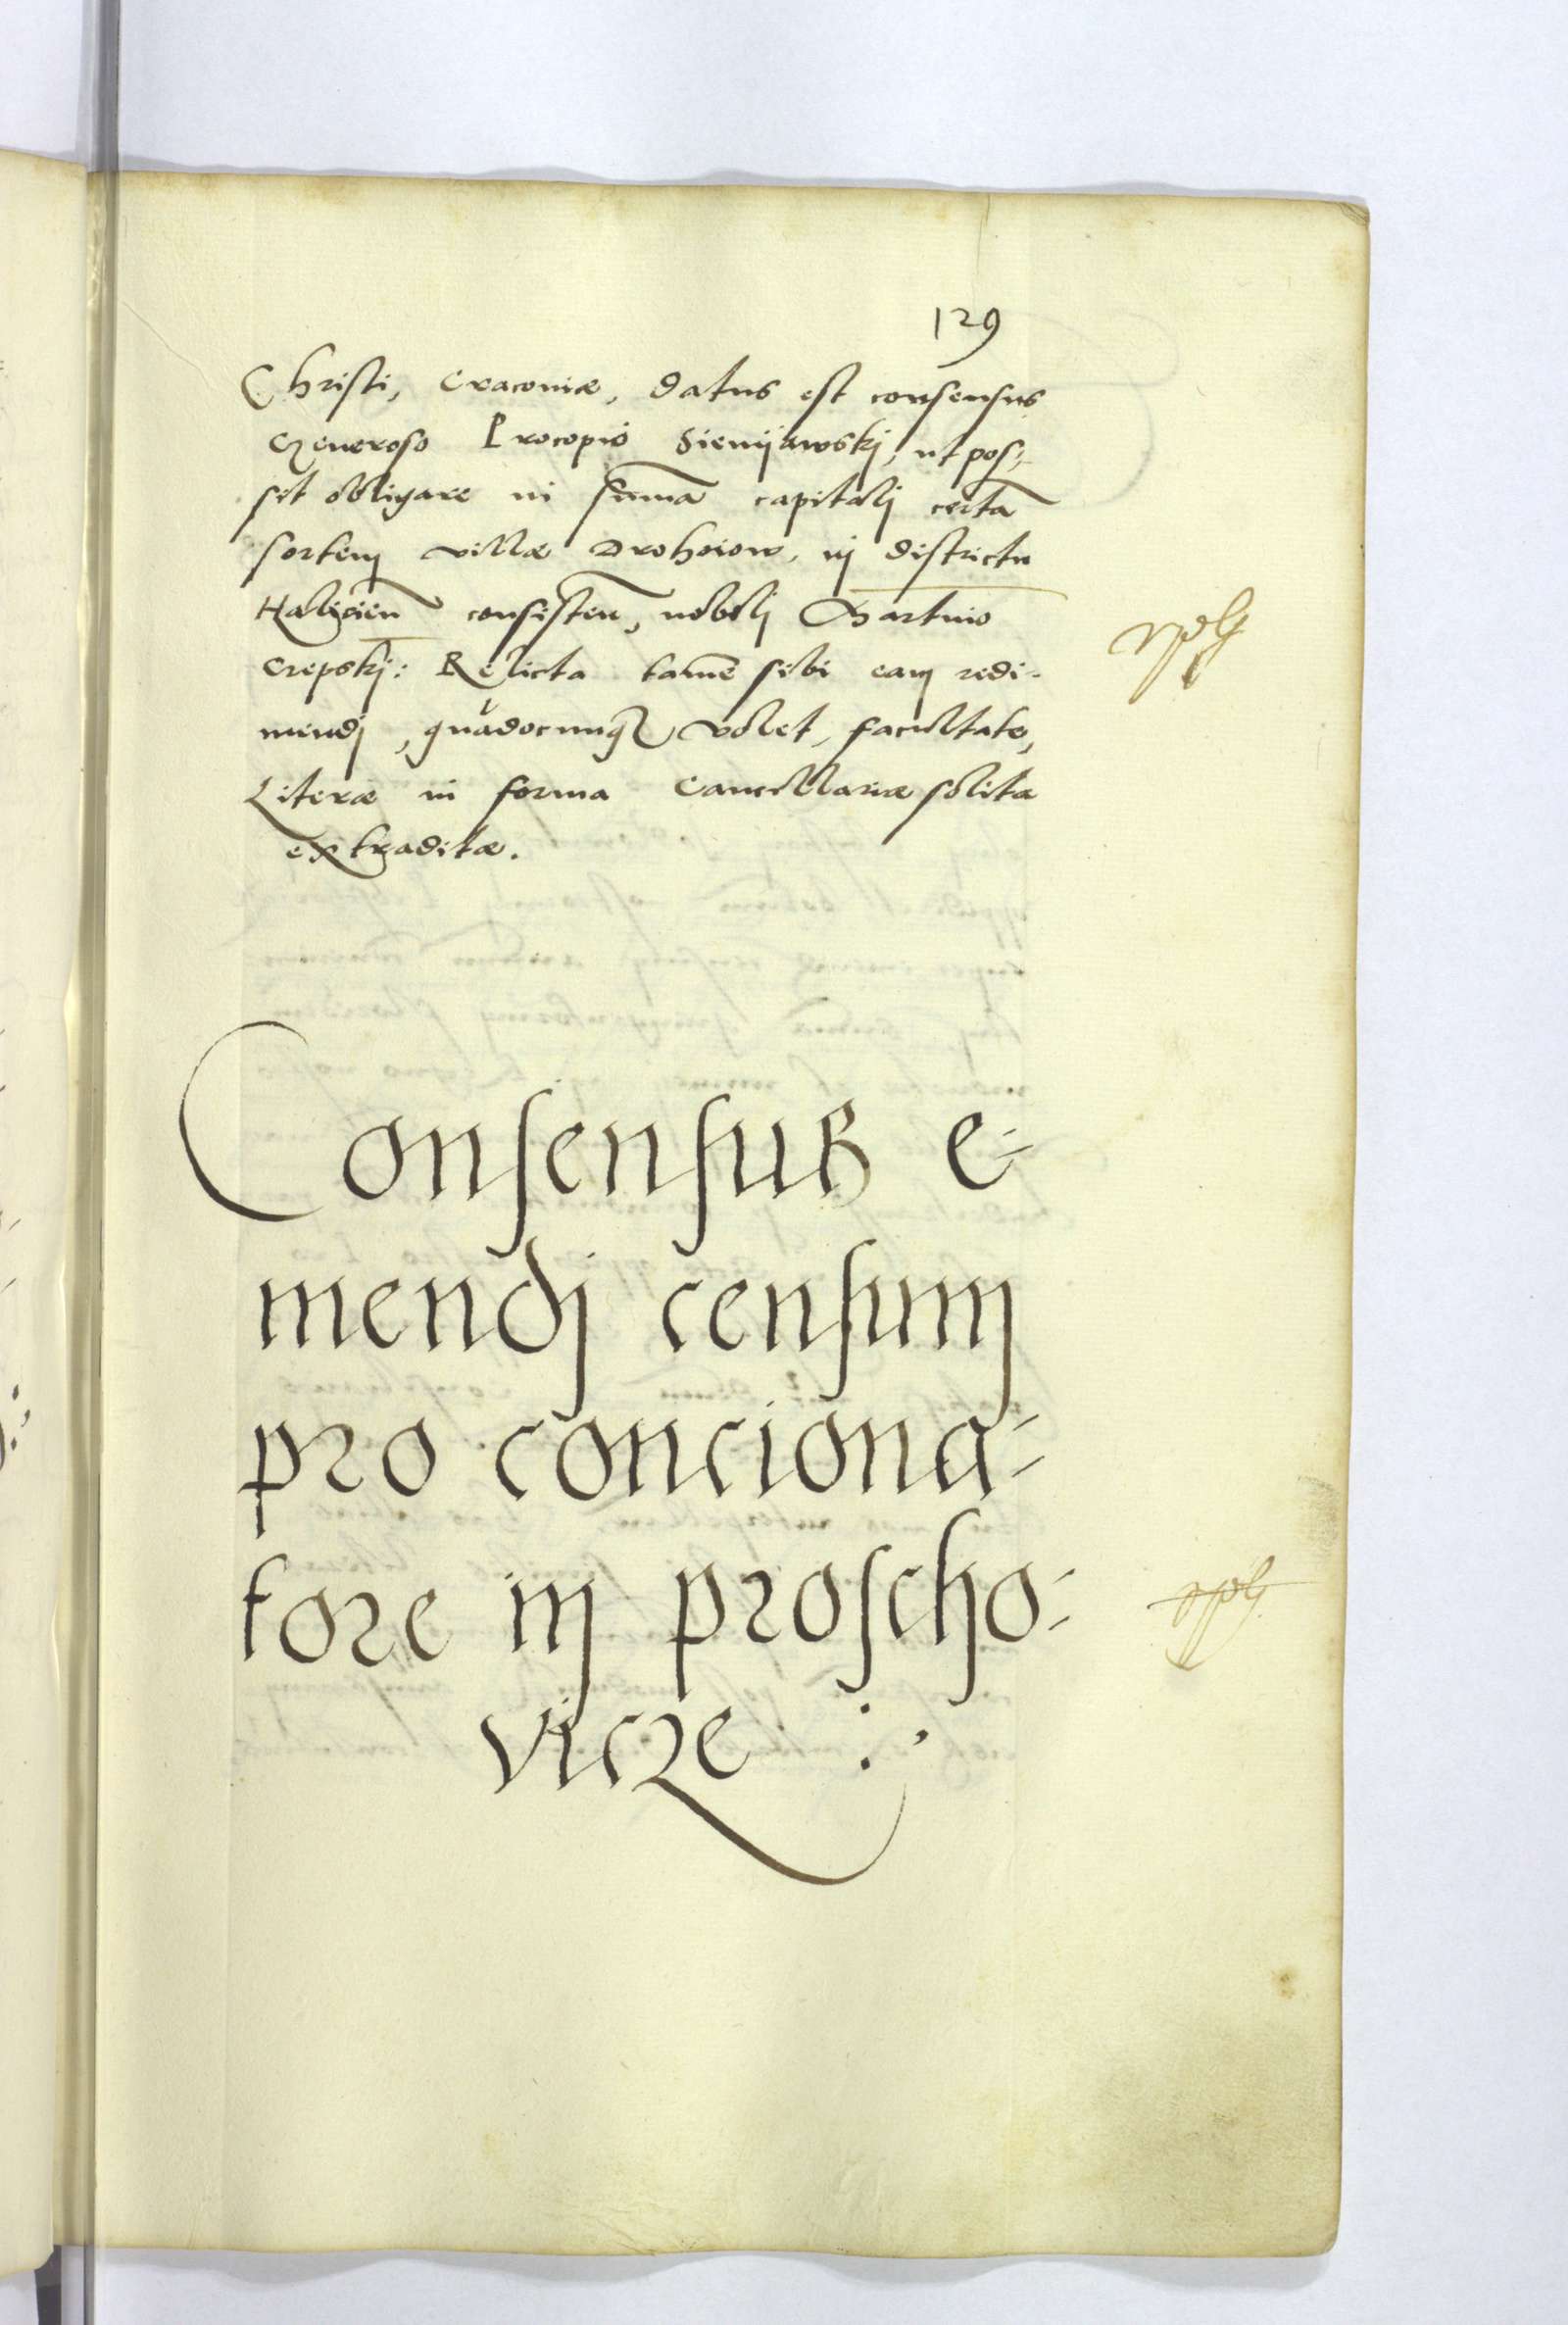 129
Christi, Cracoviæ, datus est consensus
Generoso Procopio Sienijawskj, ut pos⸗
sit obligare in summa capitalj certā
sortem villæ Drohoiow, in districtu
Haliciēn consistēn, nobilj Martino
Crepskj: Relicta tamē sibi eam redi-
mendj, quādocunq volet, facultate,
Literæ in forma Cancellariæ solita
extraditæ.
Consensus e-
mendj censum
pro conciona-
tore in proscho-
vicze :,